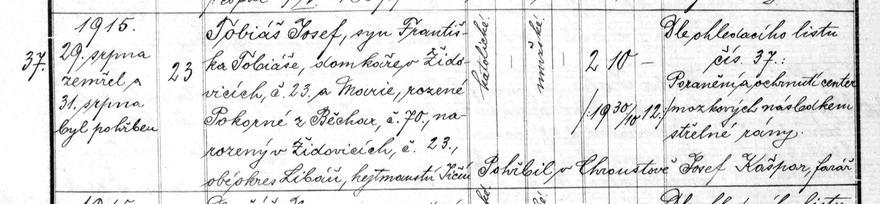 37.
1915.
29. srpna
zemřel a
31. srpna
byl pohřben
23
Tobiáš Josef, syn Františ-
ka Tobiáše, domkáře v Žido-
vicích, č. 23. a Marie, rozené
Pokorné z Běchar, č. 70., na-
rozený v Židovicích, č. 23.,
obě okres Libáň, hejtmanství Jičín
katolické
—
mužské
—
2 10 —
/: 19 30/10 12. :/
Dle ohledacího listu
čís. 37.:
Poranění a ochrnutí center
mozkových následkem
střelné rány.
Pohřbil v Chroustově Josef Kašpar, farář
1915
Dle ohledacího listu